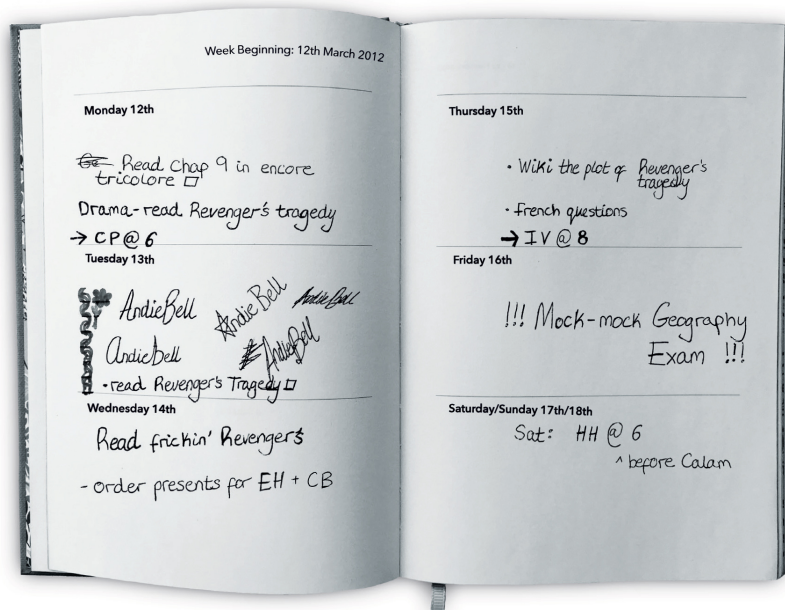 Week Beginning: 12th March 2012
Monday 12th
Read Chap 9 in encore
tricolore
Drama-read Revenger's tragedy
→ CP@6
Tuesday 13th
AndieBell
Andie Bell
AndieBell
Andiebell
AndieBell
•read Revenger's Tragedy
Wednesday 14th
Read frickin' Revenger's
- order presents for EH + CB
Thursday 15th
• Wiki the plot of Revenger's
tragedy
• french questions
→ IV @ 8
Friday 16th
!!! Mock-mock Geography
Exam !!!
Saturday/Sunday 17th/18th
Sat: HH @ 6
^ before Calam